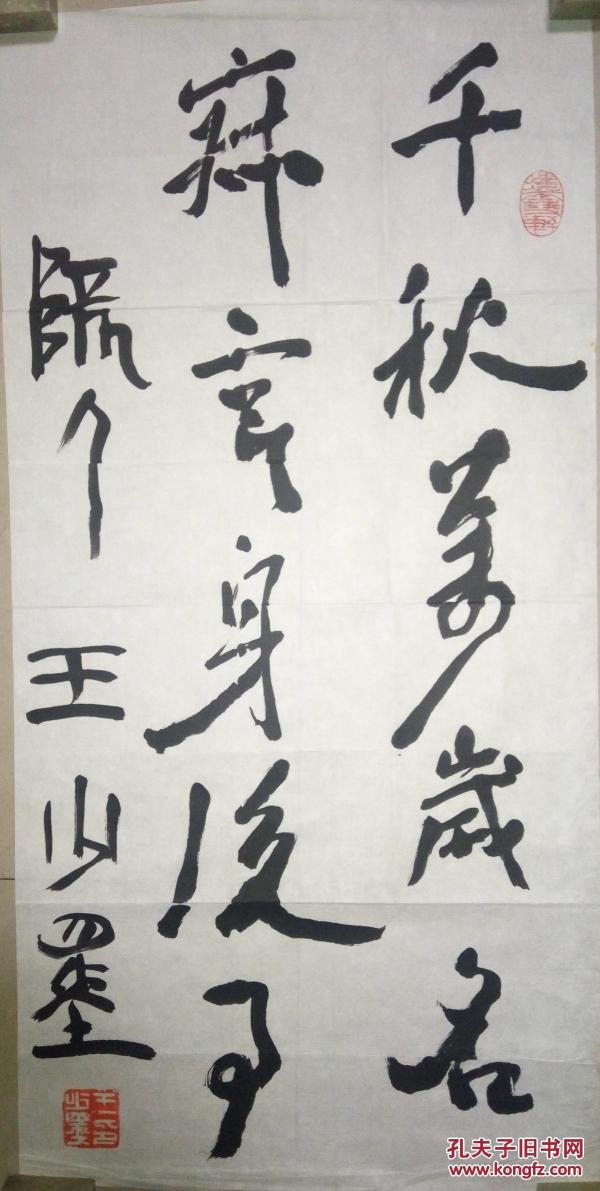 千秋萬歲名
寂寞身後事
臨 王少墨
孔夫子旧书网
www.kongfz.com